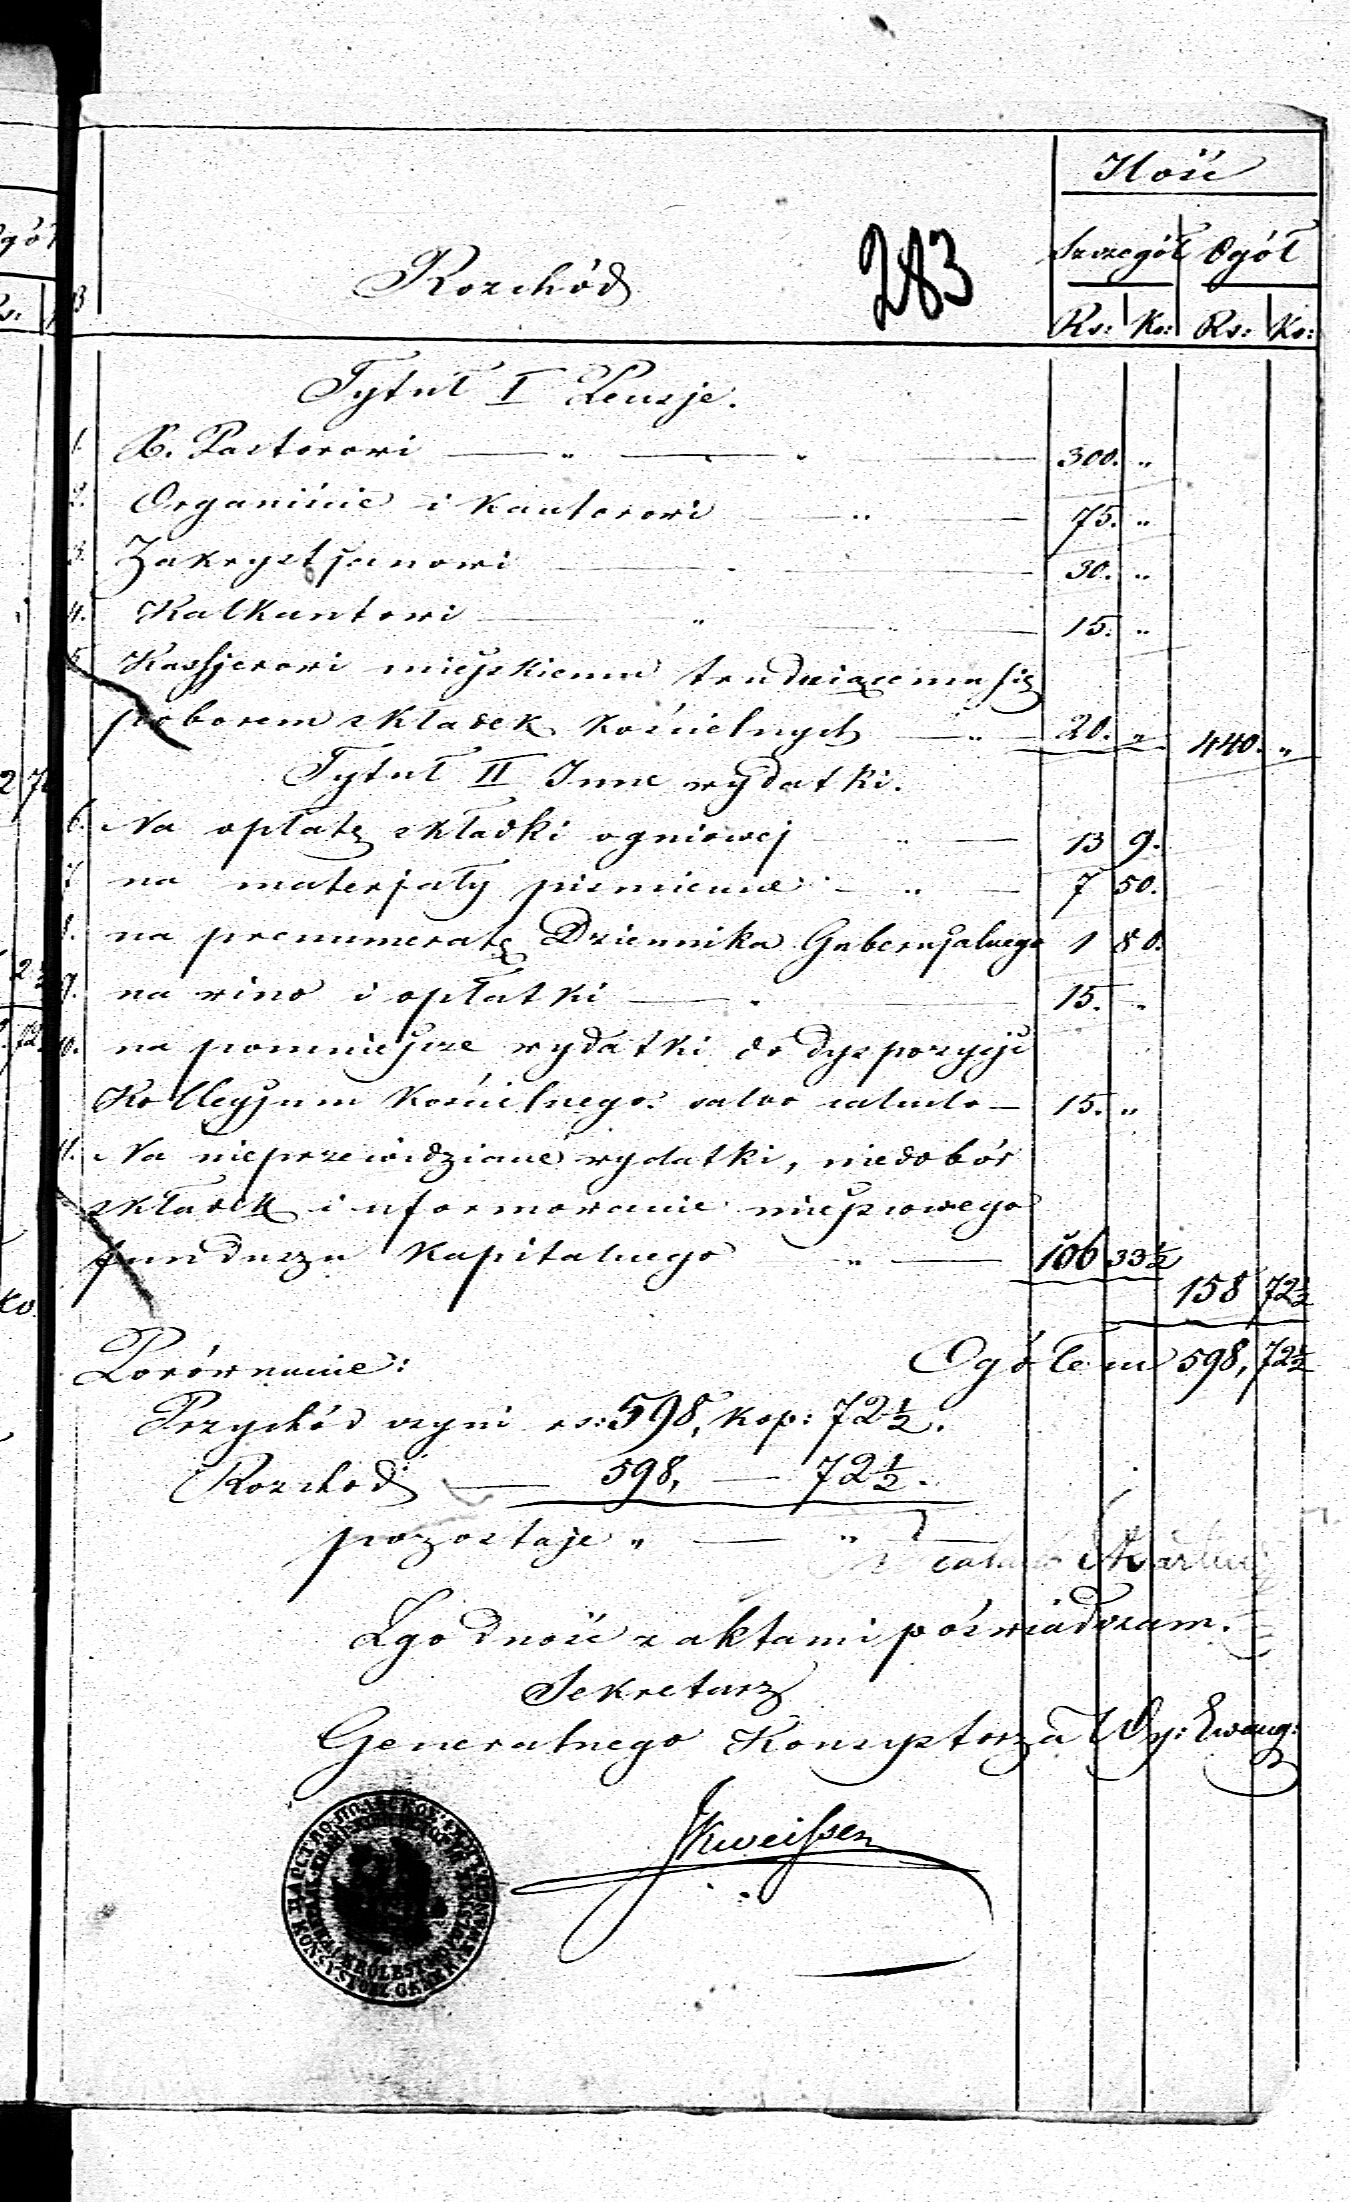 Ilość
Szczegół Ogół
Rozchód 283
Rs: Ko: Rs: Ko:
Tytuł I Pensje.
1. X. Pastorowi — „ — „ — 300. „
2. Organiście i Kantorowi — „ — 75. „
3. Zakrystjanowi — „ — 30. „
4. Kalkantowi — „ — 15. „
5. Kassjerowi miejskiemu trudniącemu się
poborem składek kościelnych — „ — 20. „ 440. „
Tytuł II Inne wydatki.
6. Na opłatę składki ogniowej — „ — 13 9.
7. na materjały piśmienne — „ — 7 50.
8. na prenumeratę Dziennika Gubernjalnego 1 80.
9. na wino i opłatki — „ — 15. „
10. na pomniejsze wydatki do dyspozycji
Kollegjum Kościelnego. salvo calculo — 15. „
11. Na nieprzewidziane wydatki, niedobór
składek i uformowanie miejscowego
funduszu Kapitalnego — „ — 106 33½
158 72½
Porównanie: Ogółem 598, 72½
Przychód czyni rs: 598, kop: 72½.
Rozchod — 598, — 72½.
pozostaje „ — „
Zgodność z aktami poświadczam.
Sekretarz
Generalnego Konsystorza Wy: Ewang:
JKweissen